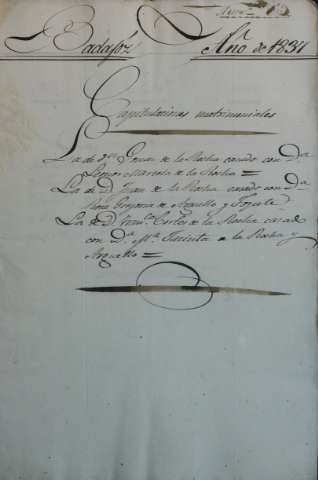 Badajóz Año de 1837
Capitulaciones matrimoniales
La de Dn de la Rocha casado con Dª
Leonor Marcela de la Rocha =
La de D. Juan de la Rocha casado con Dª
Gregoria de Arguello y
La de D. Franco Cortes de la Rocha casado
con Dª Mª Jacinta de la Rocha y
Arguello =